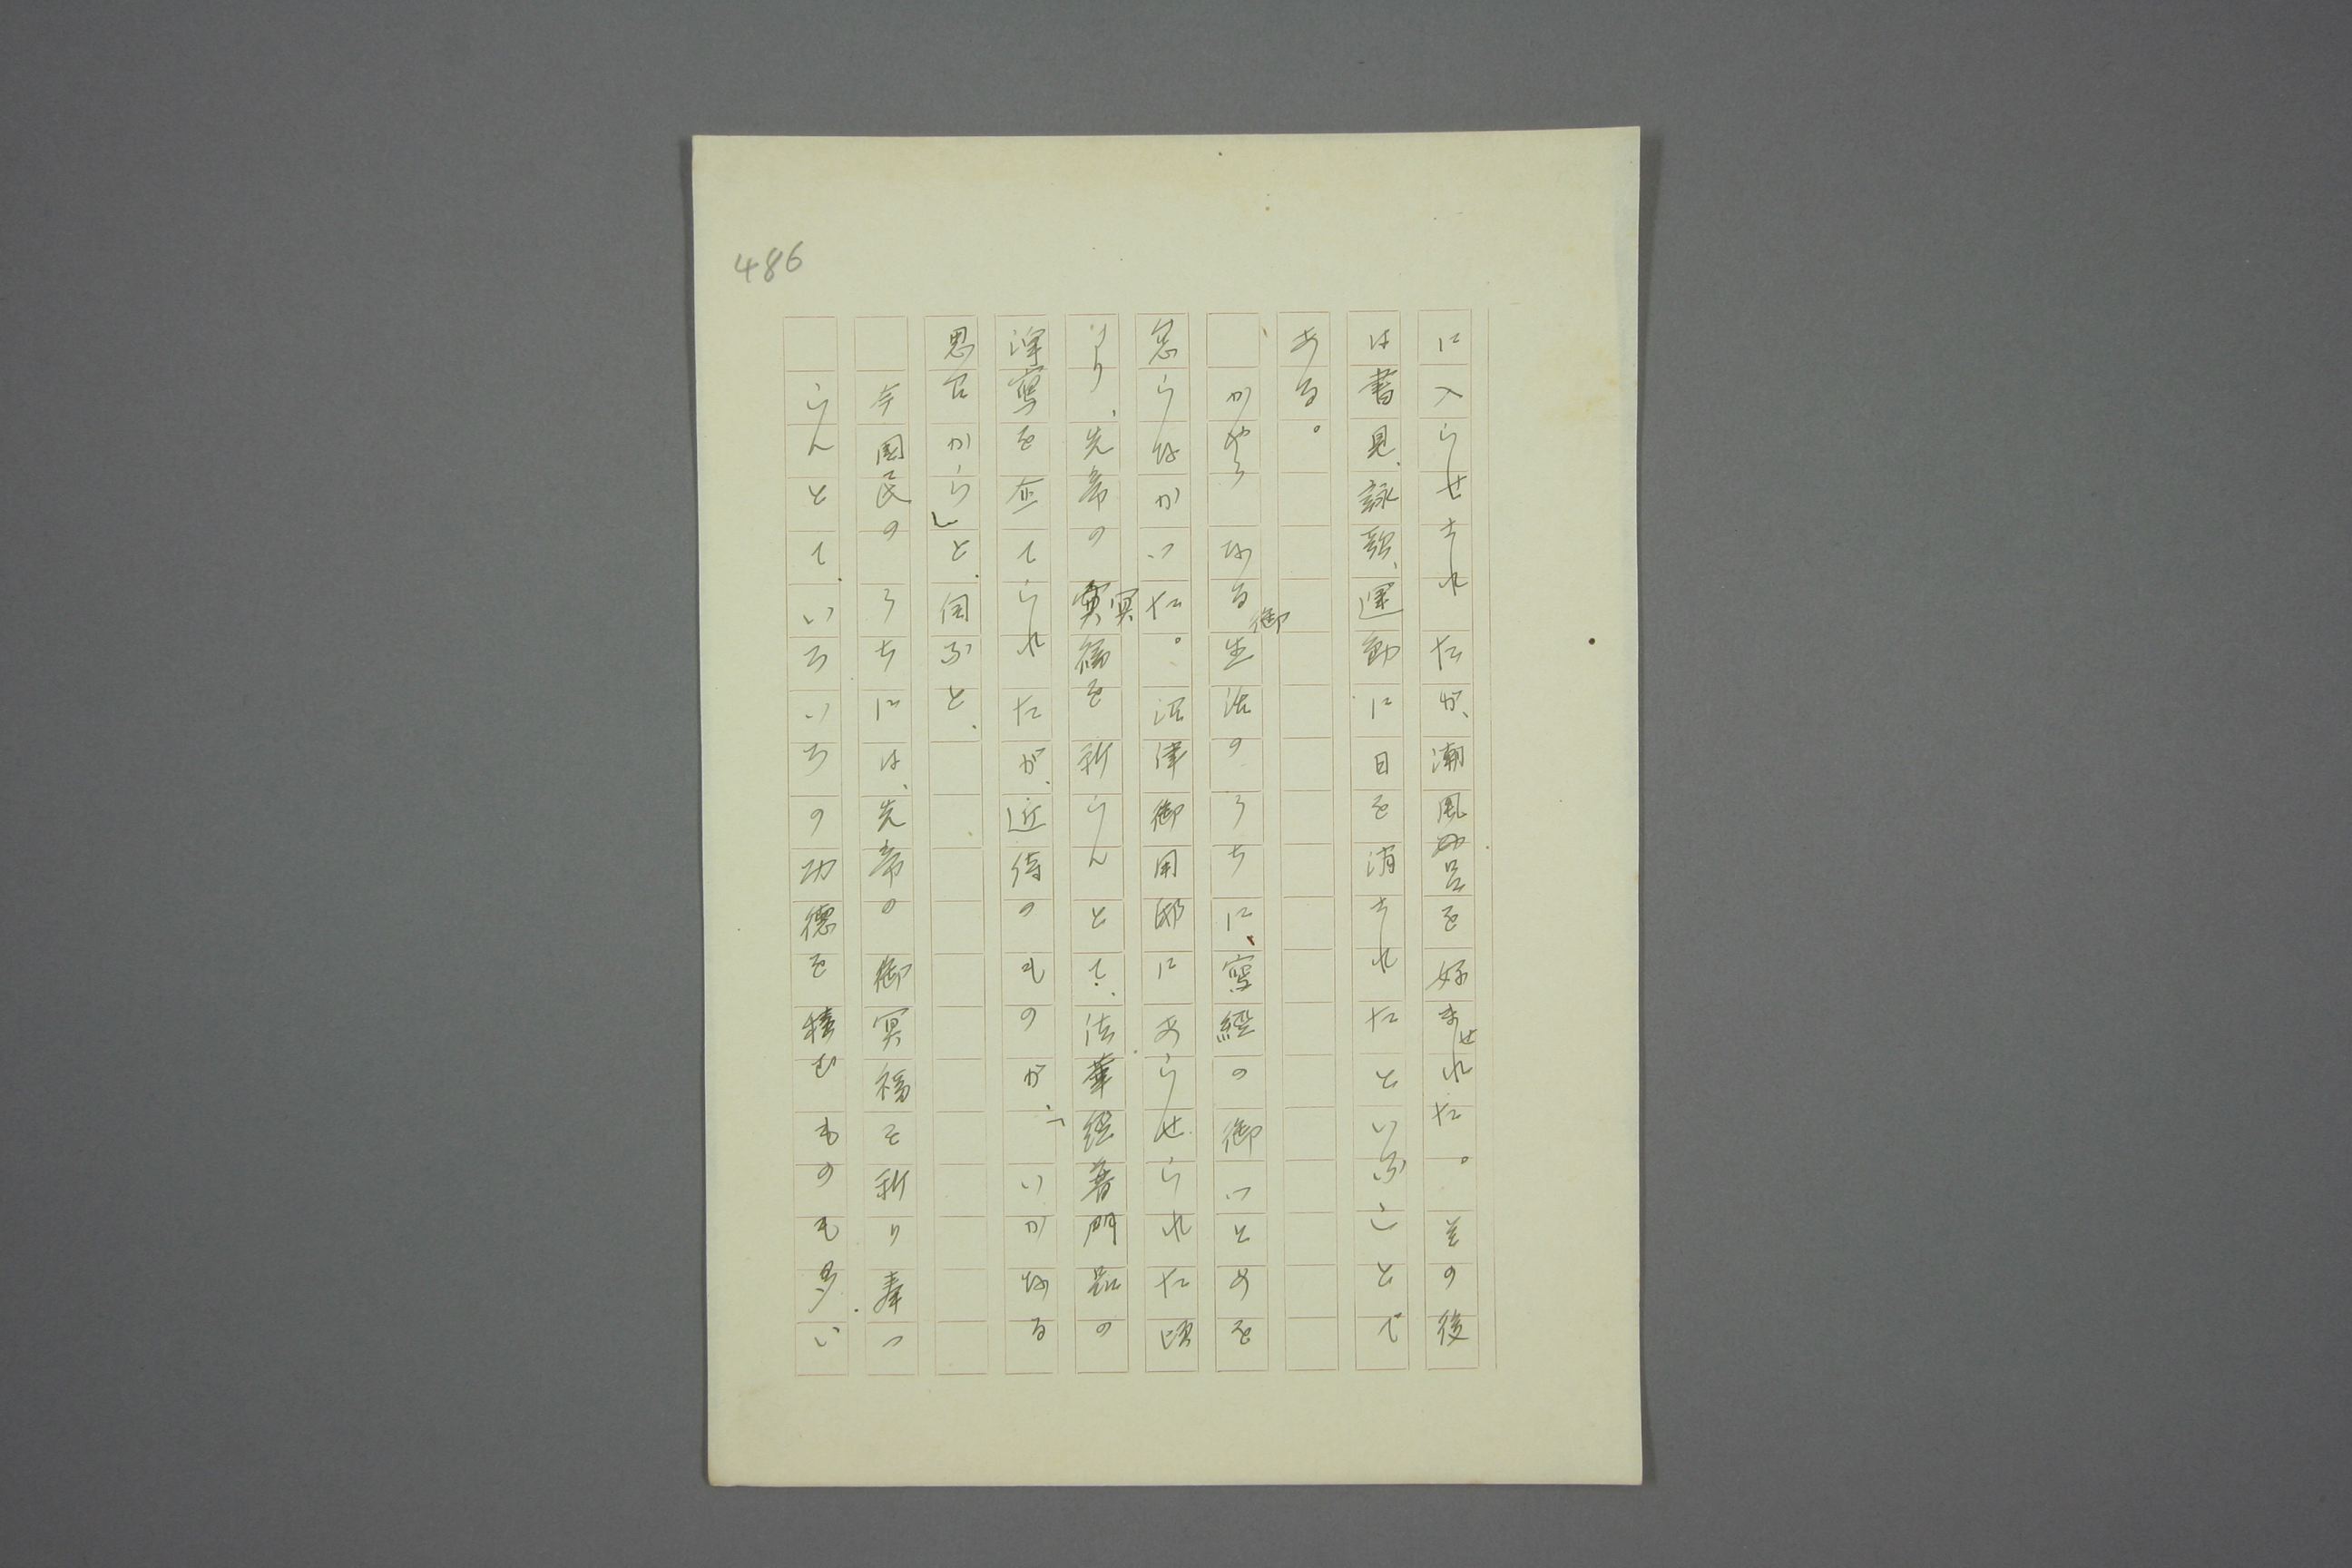 486
に入らせされたが、潮風呂を好ませれた。その後
は書見、詠歌、運動に日を消されたといふことで
ある。
かやうなる御生活のうちに、写経の御つとめを
怠らなかつた。沼津御用邸にあらせられた頃
より、先帝の冥福を祈らんとて、法華経普門品の
浄写を企てられたが、近侍のものが、「いかなる
思召から」と、伺ふと、
今国民のうちには、先帝の御冥福を祈り奉つ
らんとて、いろいろの功徳を積むものも多い